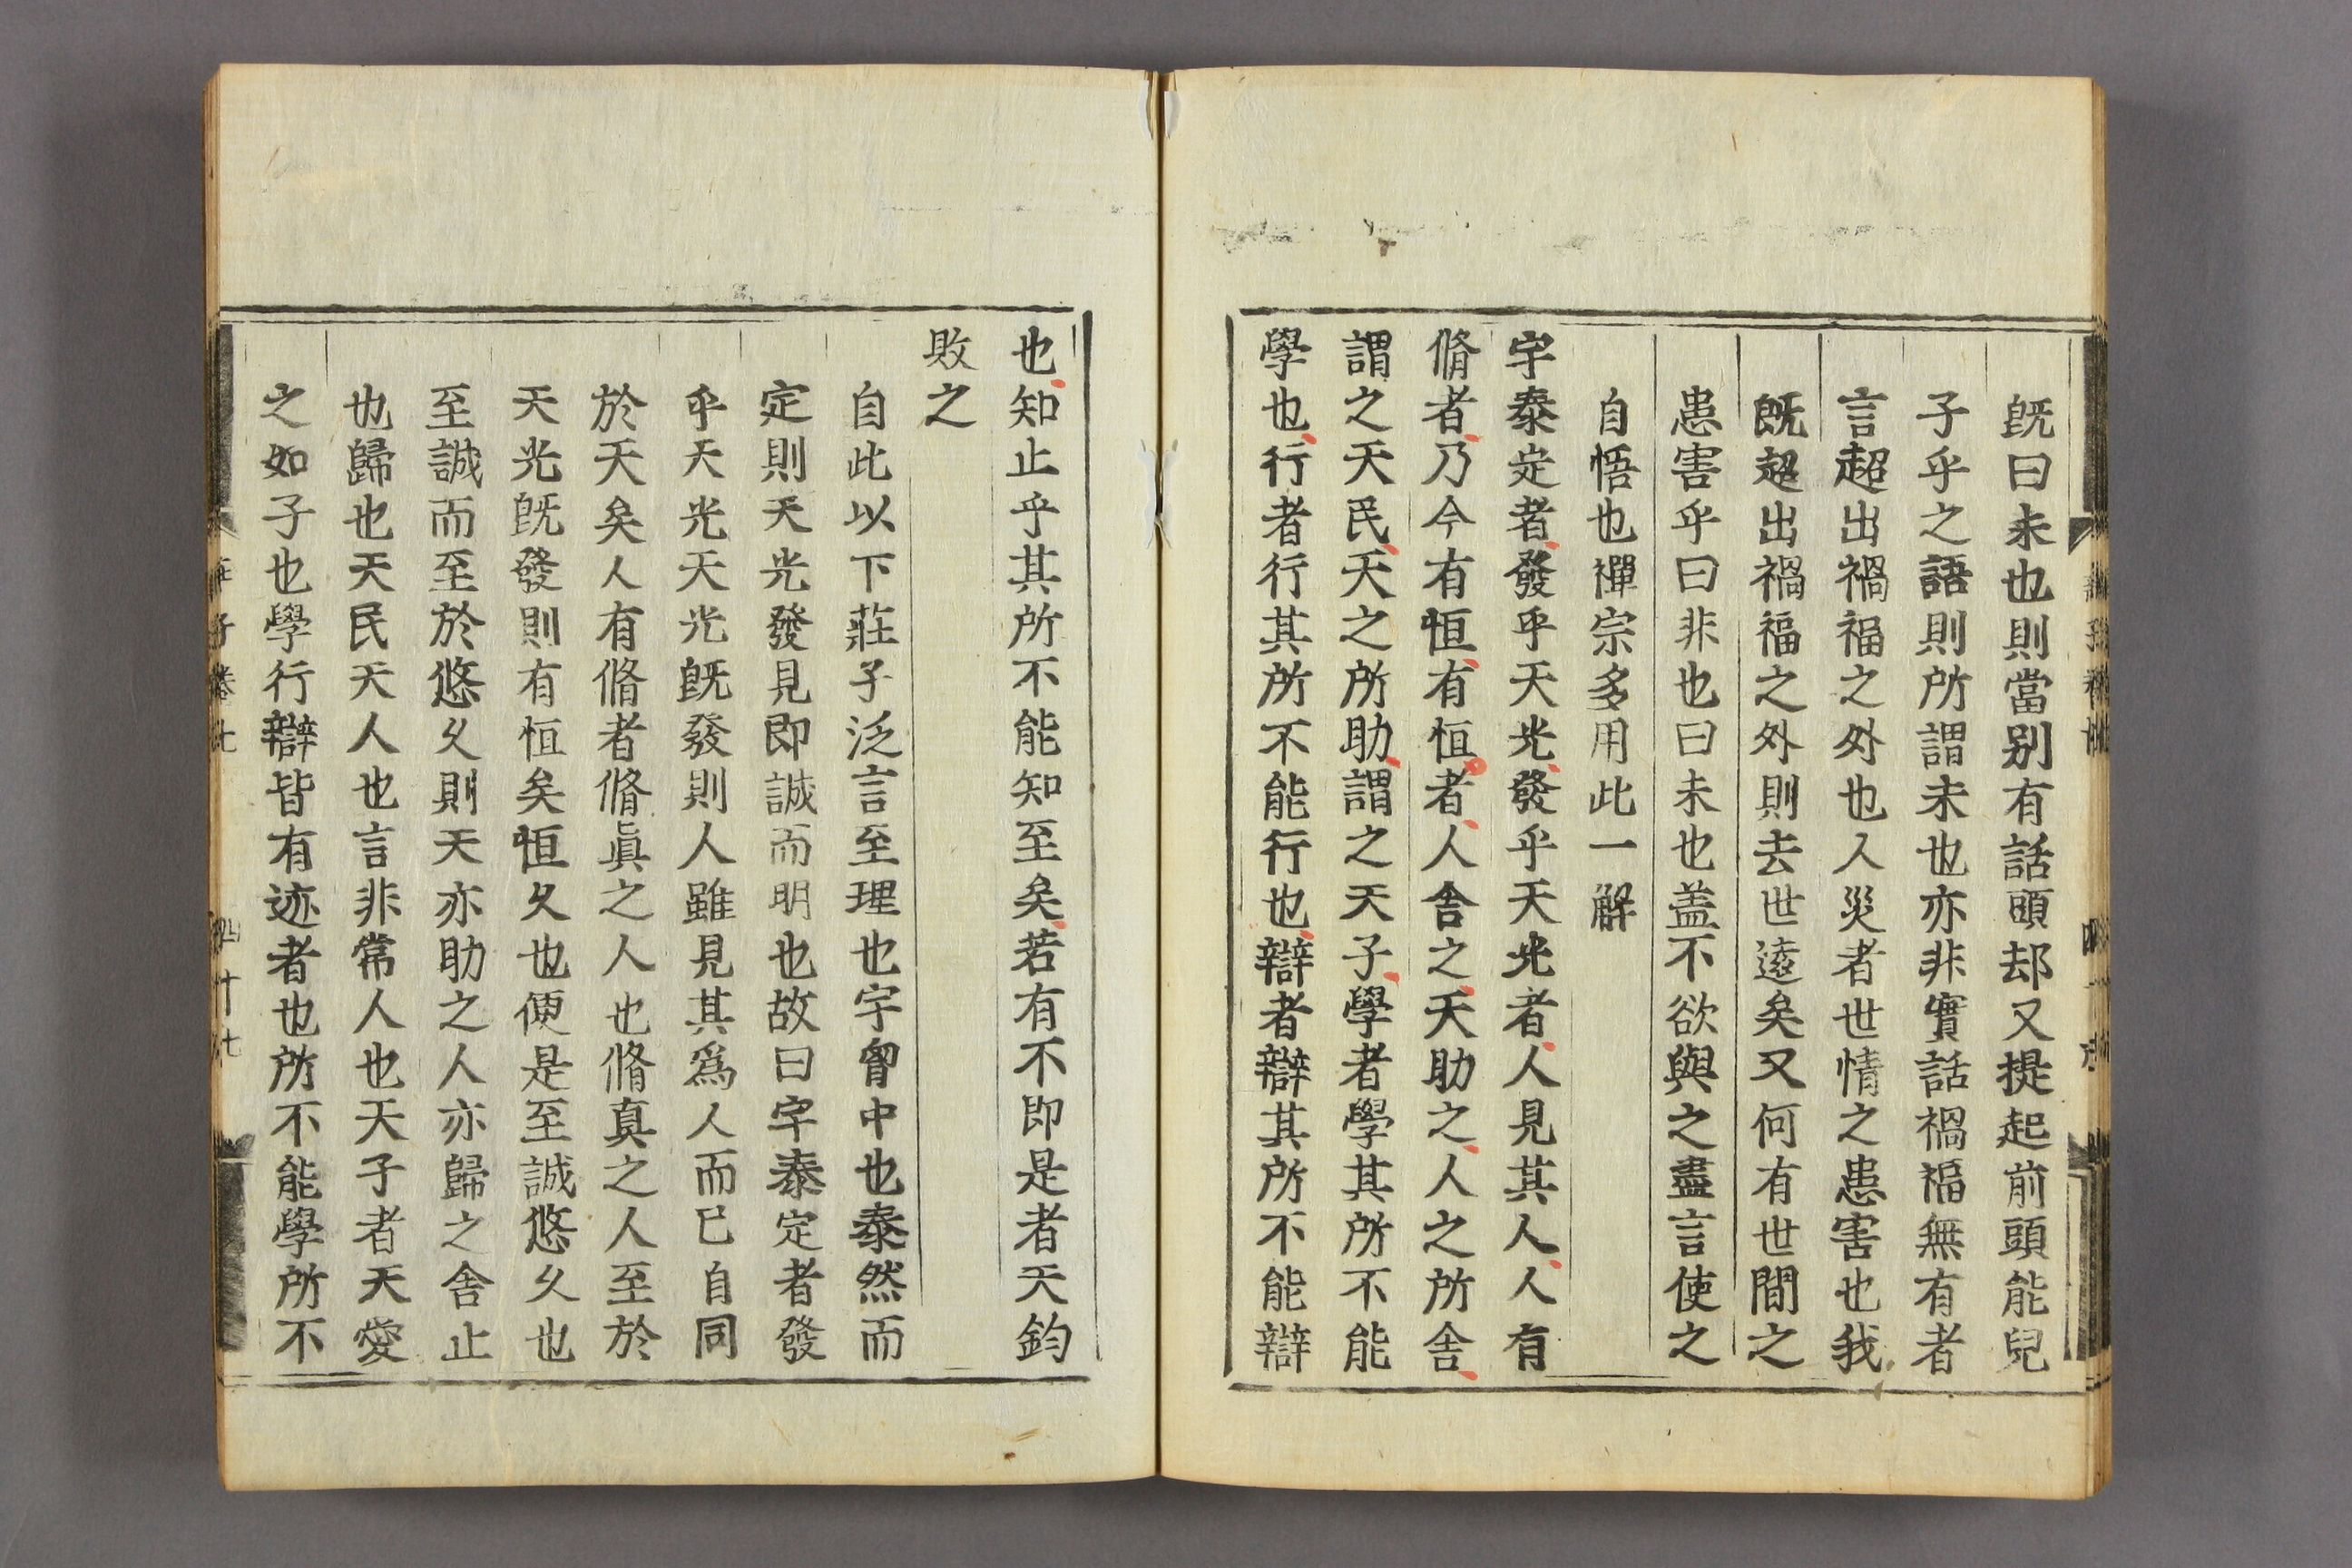 既曰未也則當别有話頭却又提起前頭能兒
子乎之語則所謂未也亦非實話禍福無有者
言超出禍福之外也人災者世情之患害也我
既超出禍福之外則去世遠矣又何有世間之
患害乎曰非也曰未也盖不欲與之盡言使之
自悟也禪宗多用此一解
宇泰定者發乎天光發乎天光者人見其人人有
脩者乃今有恒有恒者人舎之天助之人之所舎
謂之天民天之所助謂之天子學者學其所不能
學也行者行其所不能行也辯者辯其所不能辯
也知止乎其所不能知至矣若有不即是者天鈞
敗之
自此以下莊子泛言至理也宇胷中也泰然而
定則天光發見即誠而明也故曰宇泰定者發
乎天光天光既發則人雖見其爲人而已自同
於天矣人有脩者脩眞之人也脩真之人至於
天光既發則有恒矣恒久也便是至誠悠久也
至誠而至於悠久則天亦助之人亦歸之舎止
也歸也天民天人也言非常人也天子者天愛
之如子也學行辯皆有迹者也所不能學所不
莊子卷七 四十七